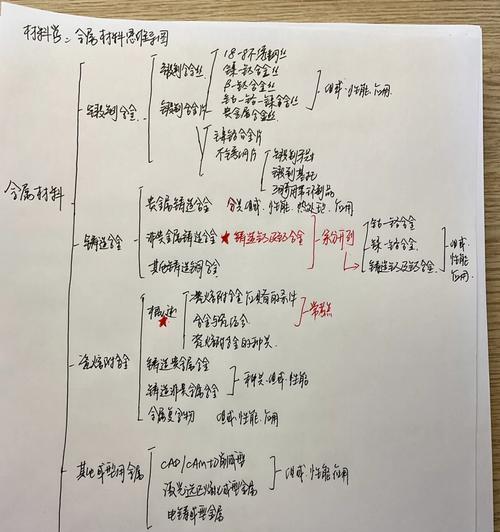 材料学：金属材料思维导图
金属材料
锻制合金
锻制合金丝
18-8不锈钢丝
镍-钛合金丝
β-钛合金丝
钴-铬-镍合金丝
贵金属合金丝
组成·性能·应用
锻制合金片
无镍铬合金片
不锈钢片
锻制牙冠
锻制基托
铸造合金
贵金属铸造合金 分类·组成·性能·热处理·应用
非贵金属铸造合金 ★铸造钛及钛合金
其他铸造铜合金
钴-铬合金
镍-铬合金
铸造钛及钛合金
组成
性能
应用
瓷熔附合金
概述
★
瓷熔附合金应具备的条件
合金与瓷结合
瓷熔附合金的种类
常考点
铸造贵金属合金
铸造非贵金属合金
种类·组成·性能
金属复合物 组成·性能·应用
其他成型用金属
CAD/CAM切削成型
激光选区熔化成型金属
电铸成型金属
组成·性能·应用